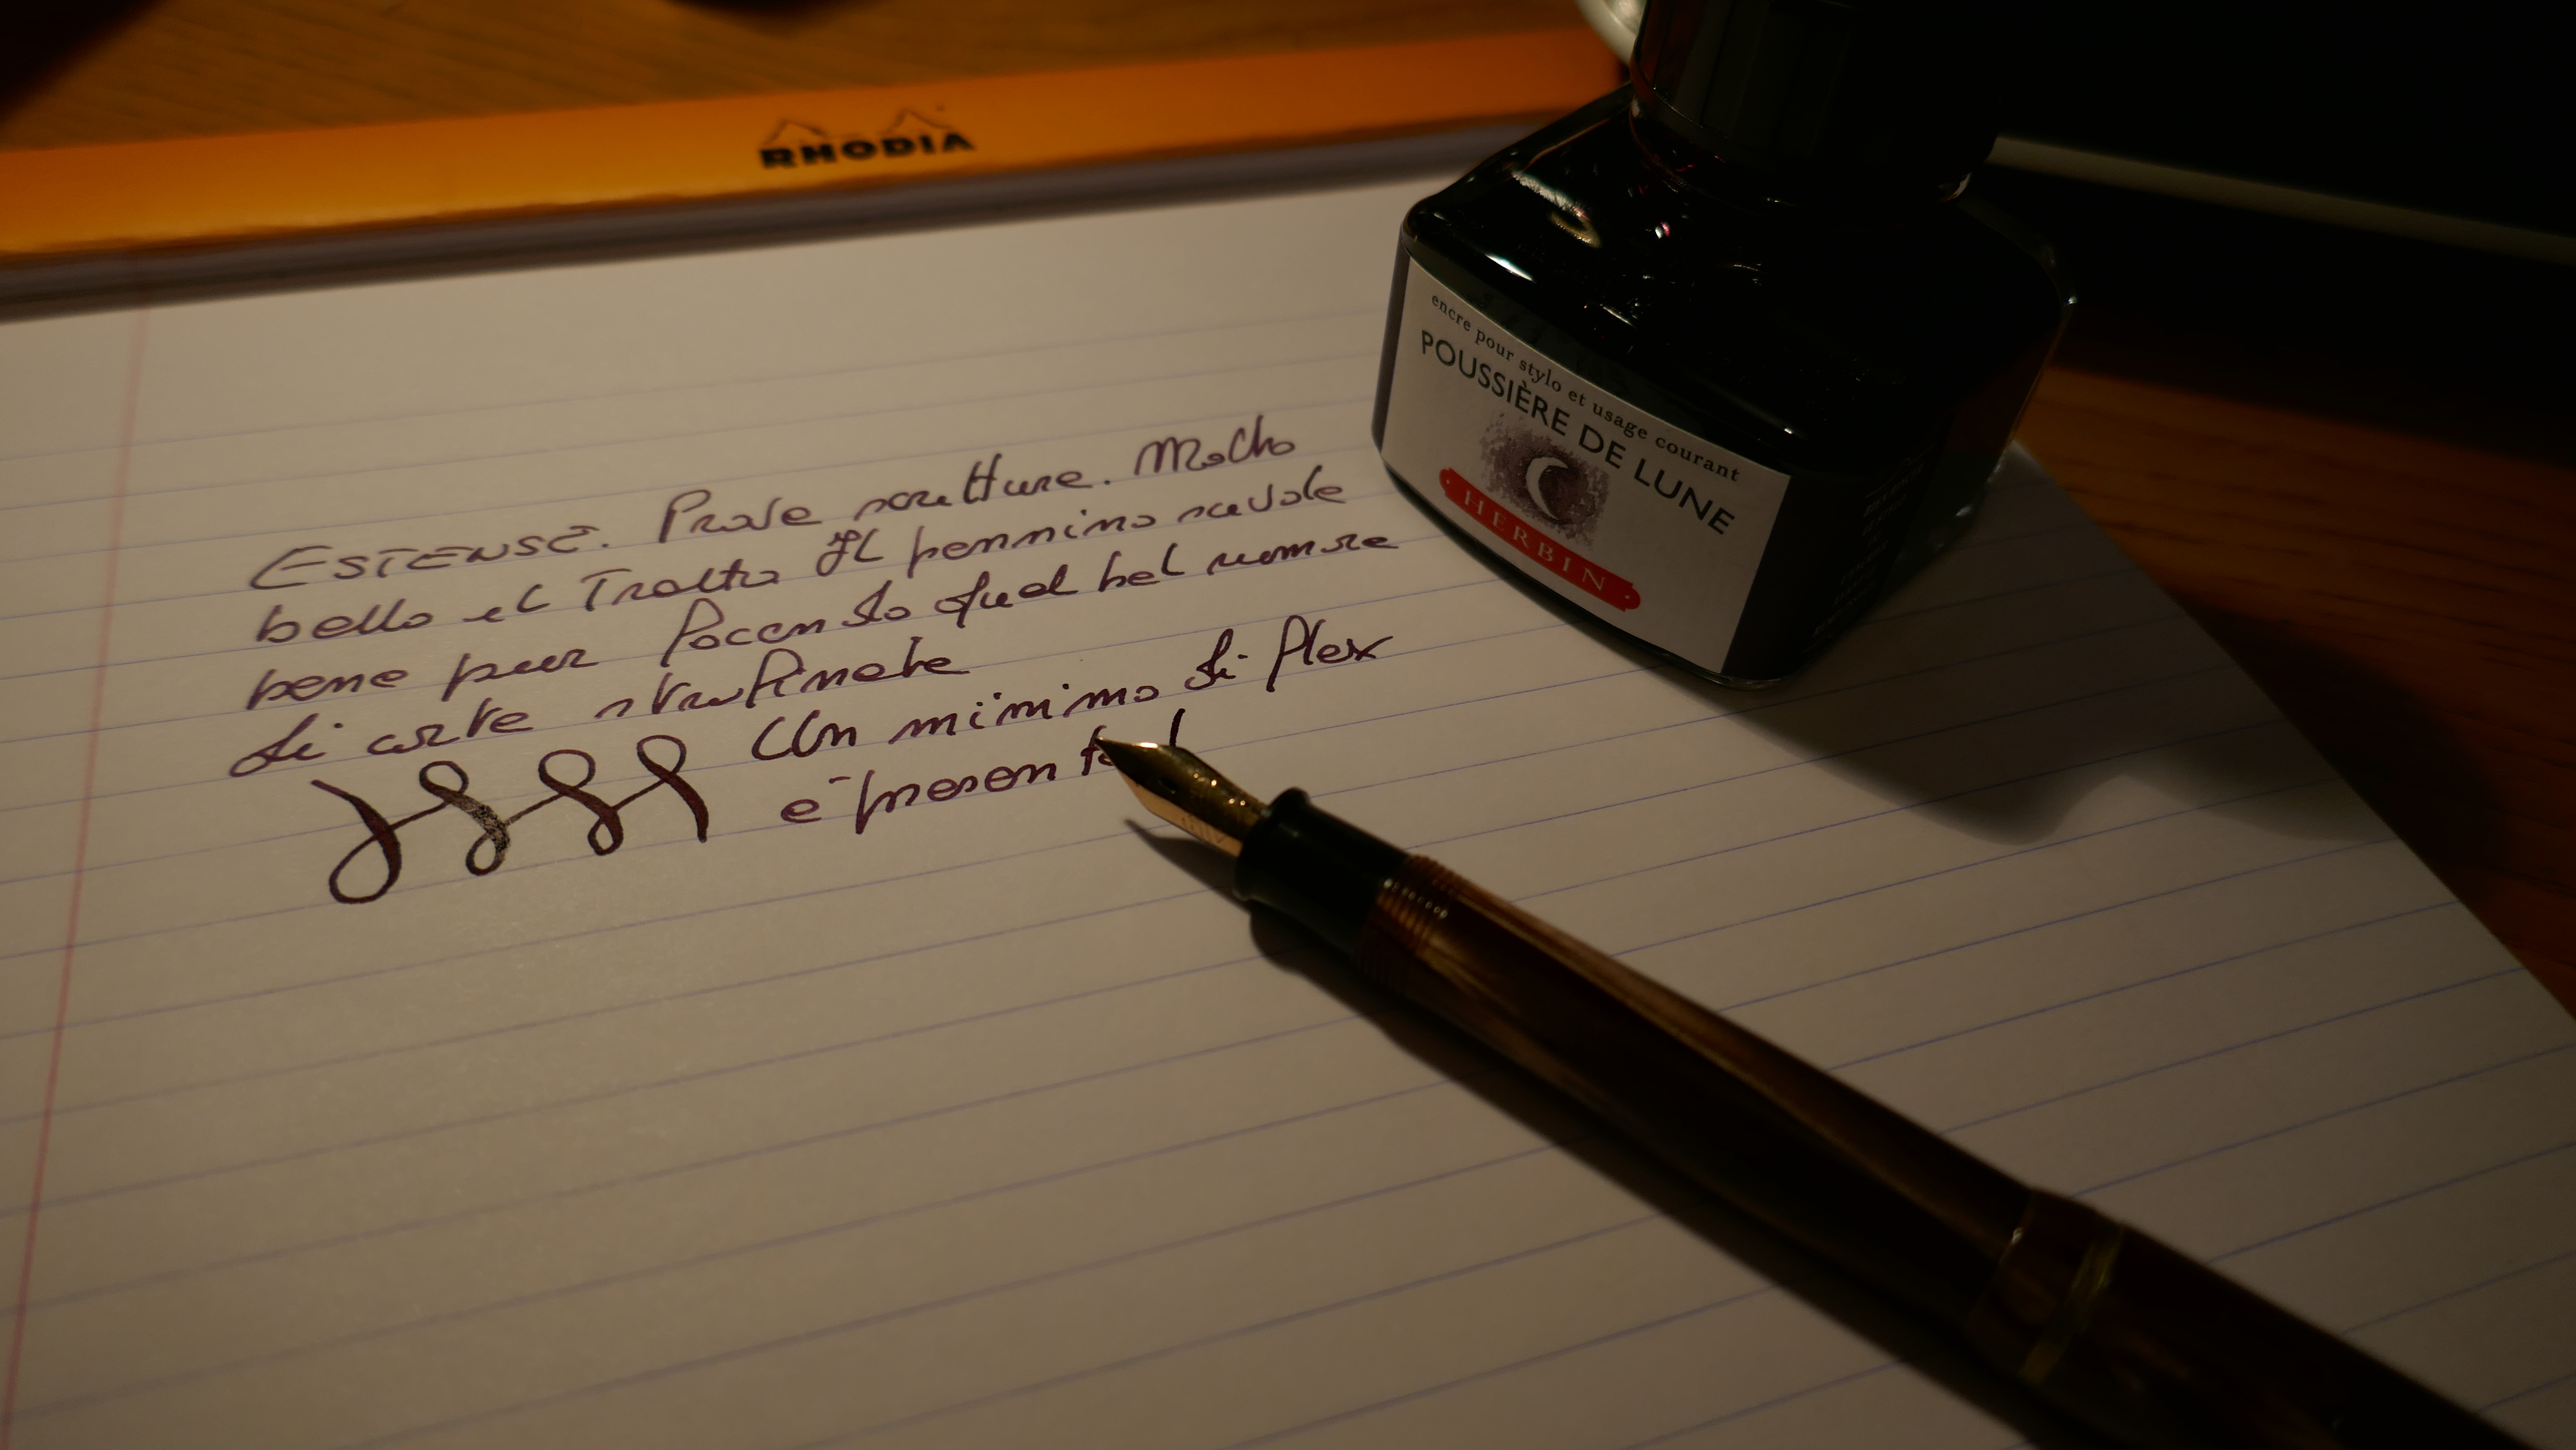 RHODIA
encre pour stylo et usage courant
POUSSIÈRE DE LUNE
HERBIN
ESTENSE. Prova scrittura. Molto
bello il Tratto Il pennino scivola
bene pur facendo quel bel rumore
di carta strofinata
Un minimo di flex
è presente!